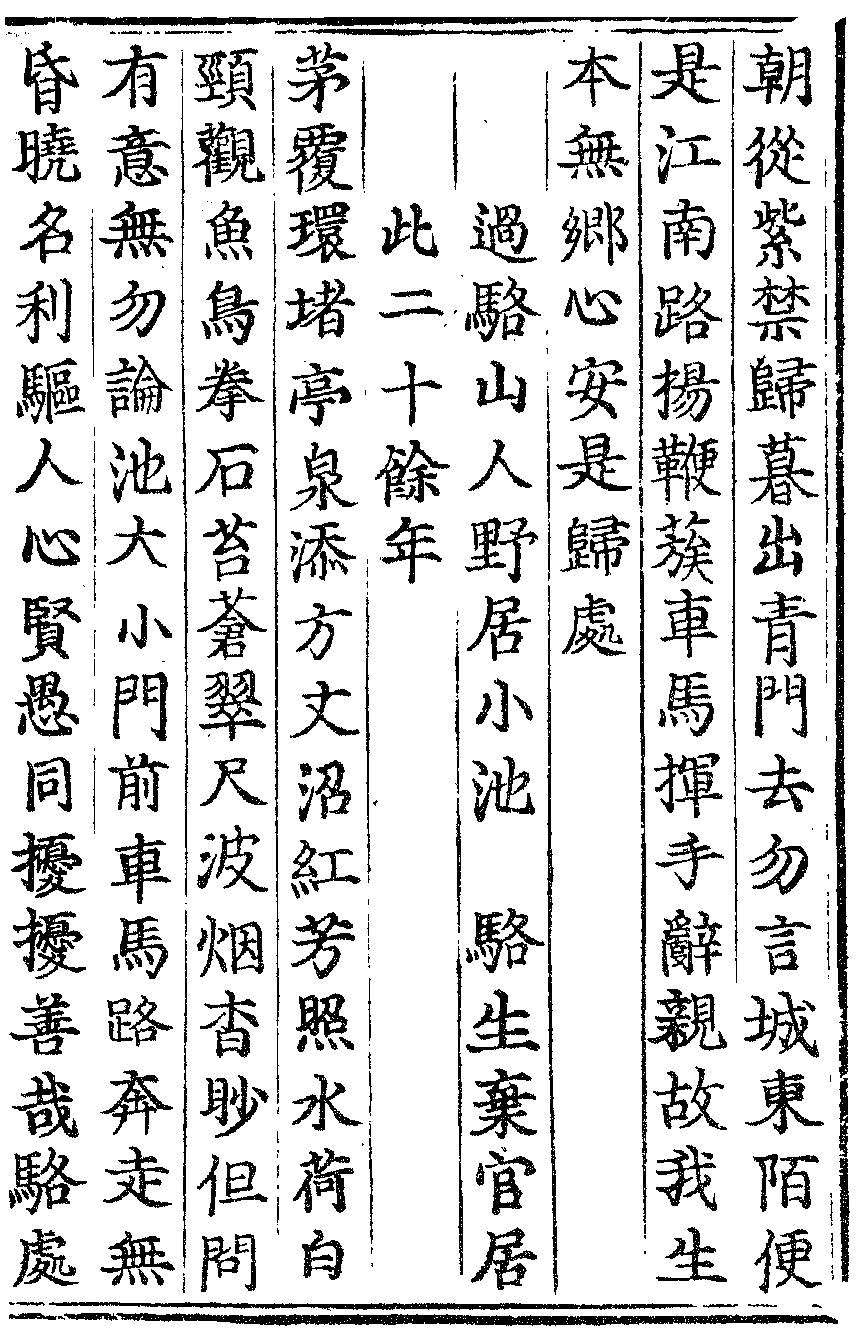 朝從紫禁歸暮出青門去勿言城東陌便
是江南路揚鞭蔟車馬揮手辭親故我生
本無鄉心安是歸處
過駱山人野居小池　駱生棄官居
此二十餘年
茅覆環堵亭泉添方丈沼紅芳照水荷白
頸觀魚鳥拳石苔蒼翠尺波烟杳眇但問
有意無勿論池大小門前車馬路奔走無
昏曉名利驅人心賢愚同擾擾善哉駱處